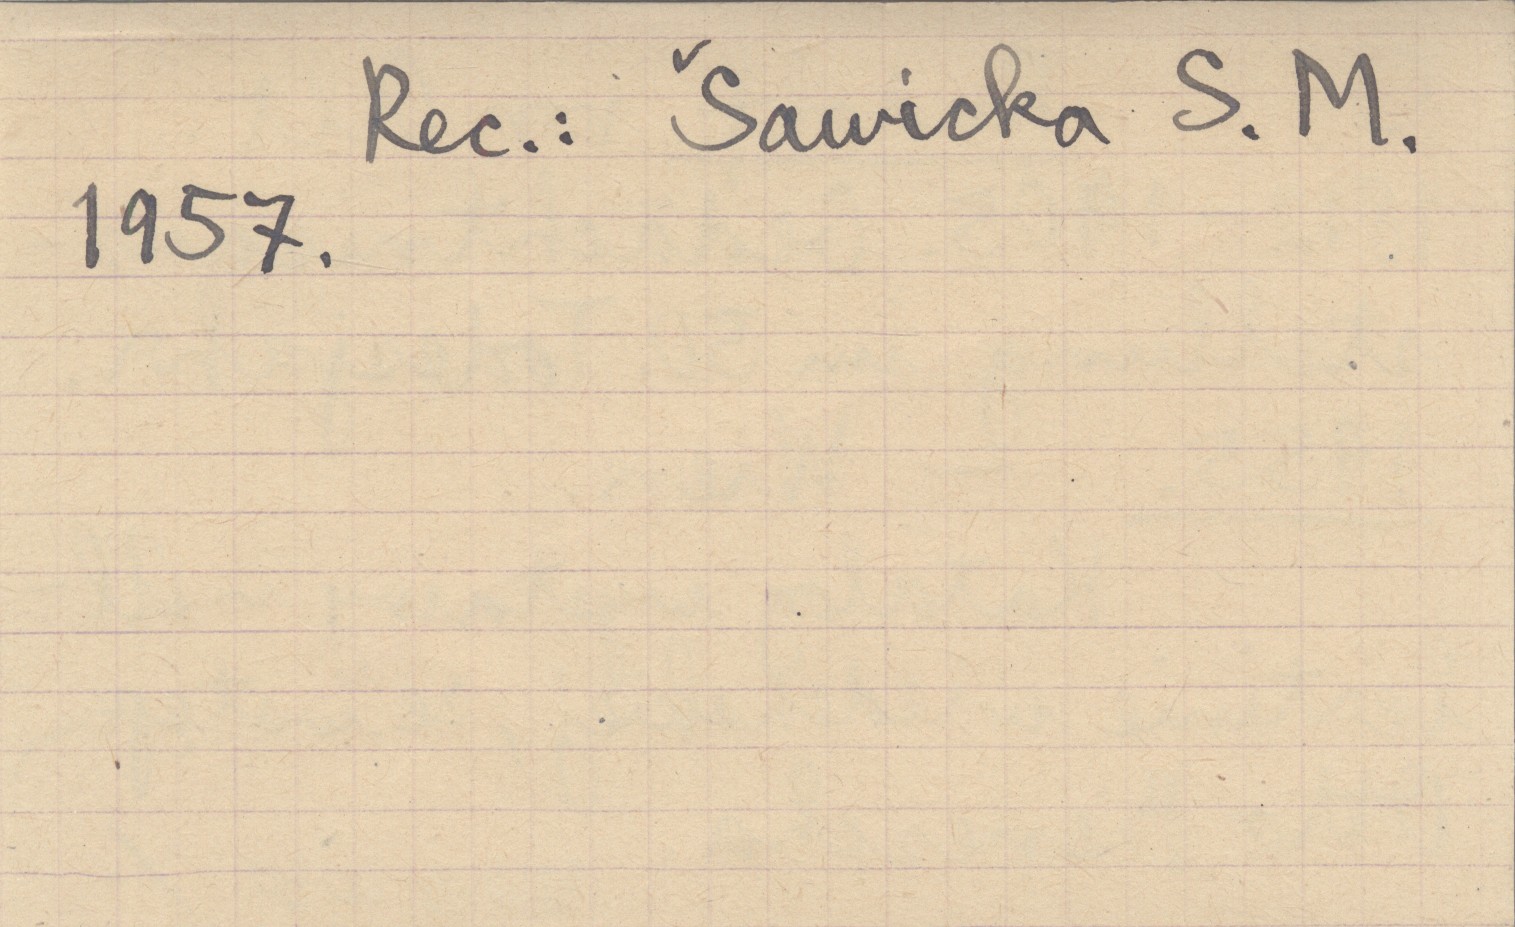 Rec.: Šawicka S. M.
1957.